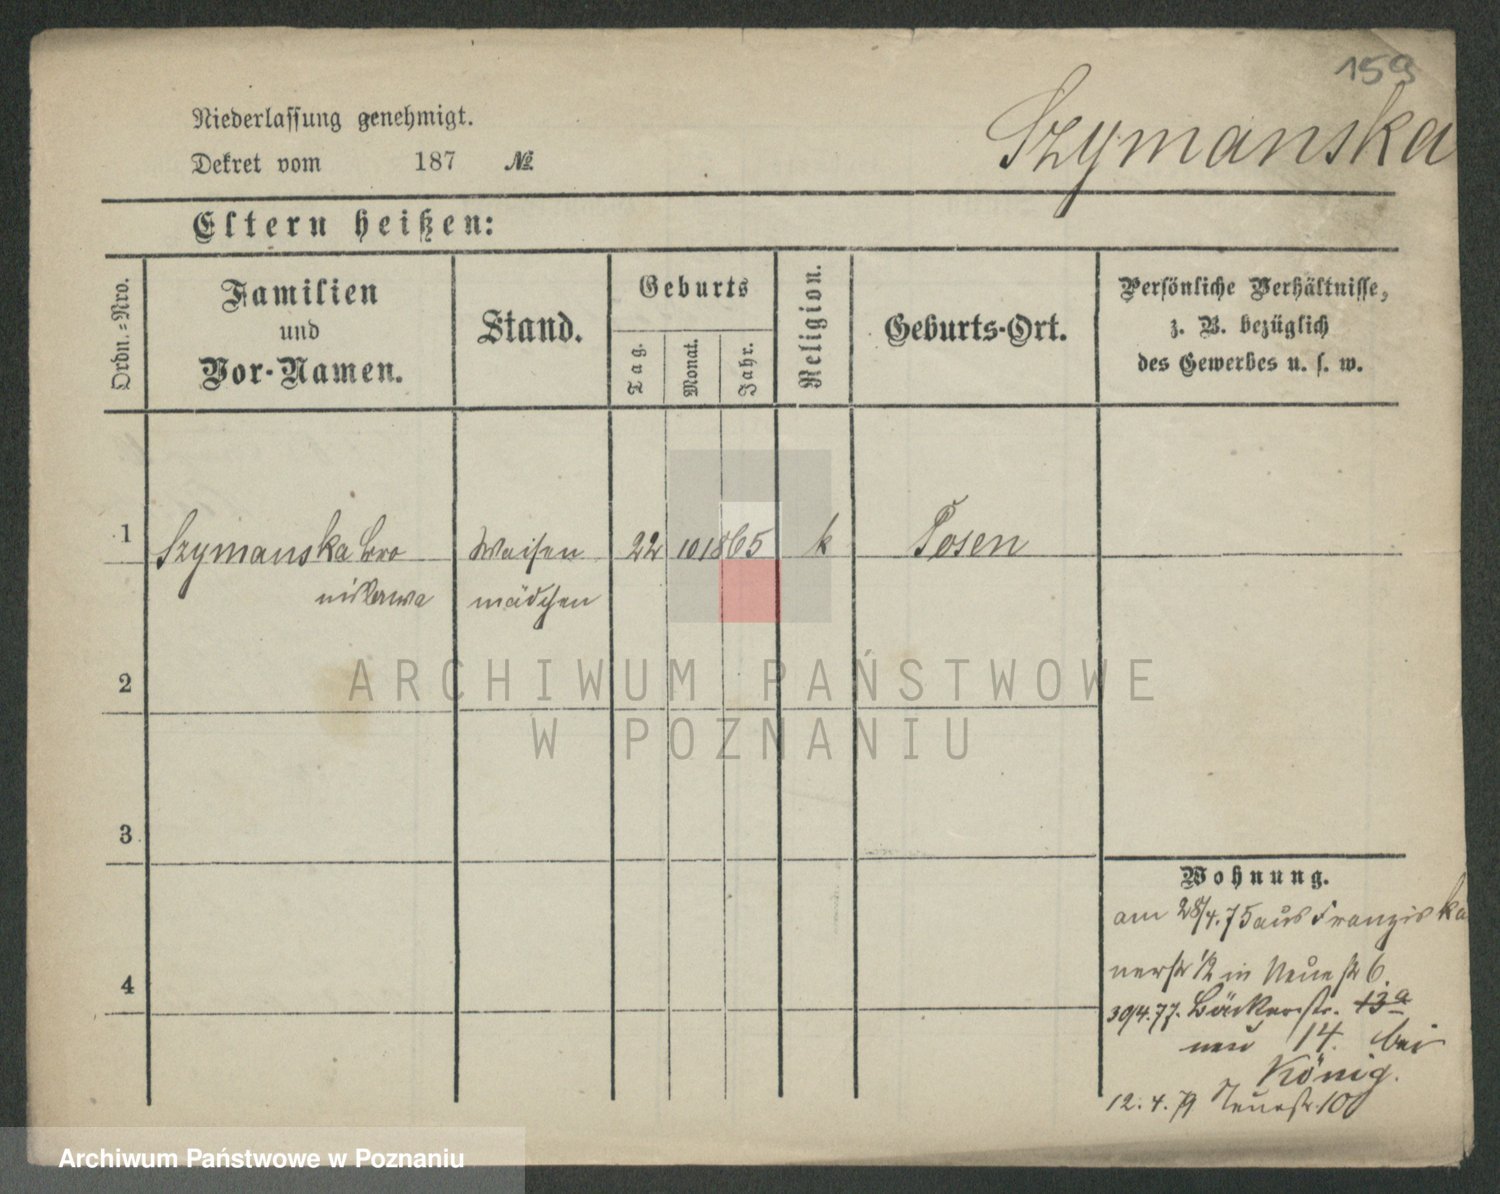 159
Szymanska
Niederlassung genehmigt.
Dekret vom 187 №
Eltern heißen:
Ordn.-Nro.
Familien
und
Vor-Namen.
Stand.
Geburts
Tag.
Monat.
Jahr.
Religion.
Geburts-Ort.
Persönliche Verhältnisse,
z. B. bezüglich
des Gewerbes u. s. w.
1 Szymanska Bro Waisen 22 10 1865 k Posen
nislawa mädchen
2
3
4
ARCHIWUM PAŃSTWOWE
W POZNANIU
Wohnung.
am 28/4.75 aus Franziska
nerstr 1/2 in Neue str 6.
30/4.77. Bäckerstr. 13a
neu 14. bei
König.
12.4.79 Neuestr. 10
Archiwum Państwowe w Poznaniu